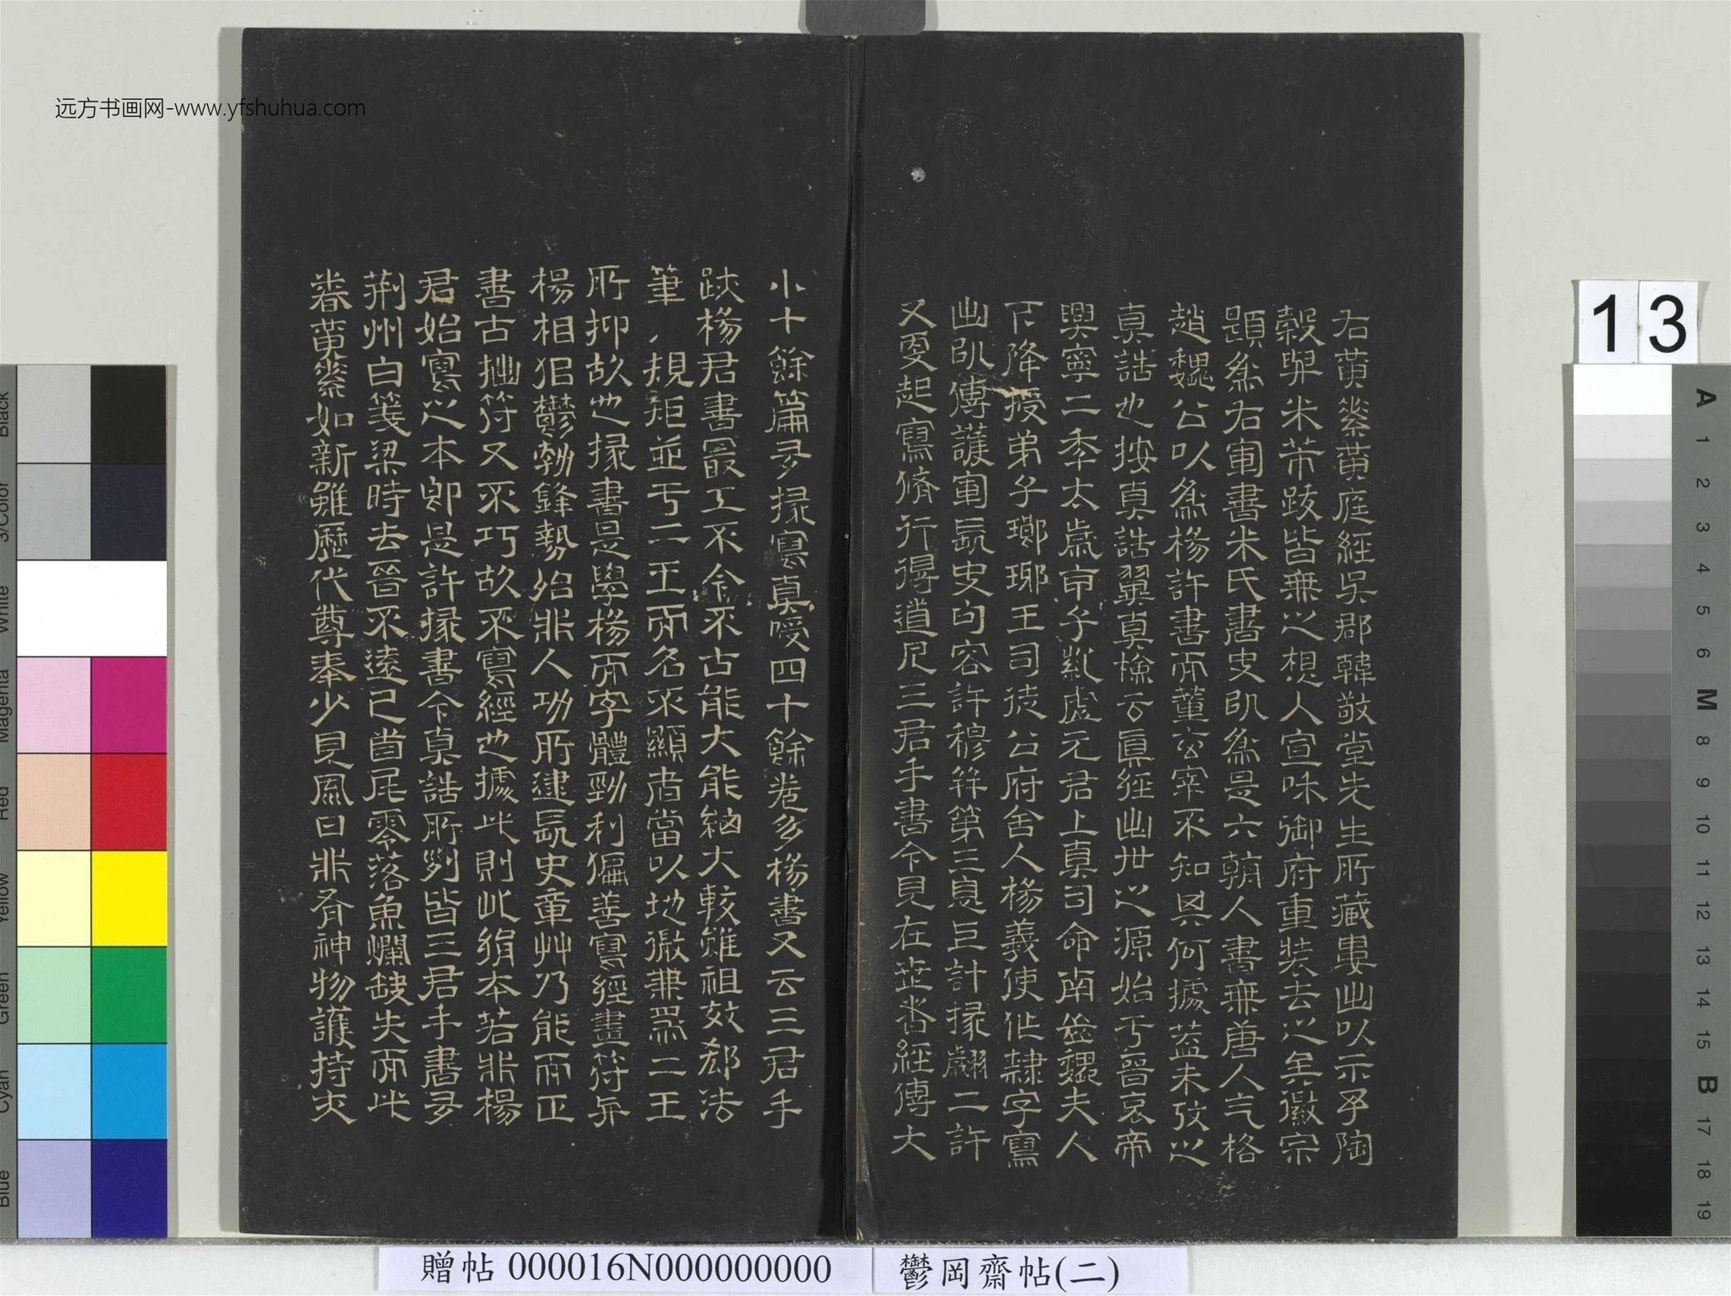 远方书画网-www.yfshuhua.com
右黄素黄庭經吴郡韓敬堂先生所藏婁出以示予陶
穀與米芾跋皆無之想入宣咊御府重裝去之矣徽宗
題為右軍書米氏書史㕥為是六朝人書無唐人气格
趙魏公以為楊許書而董玄宰不知其何據蓋未攷之
真誥也按真誥翼真檢云眞經出世之源始亏晉哀帝
興寧二秊太歲甲子紫虛元君上真司命南嶽魏夫人
下降授弟子瑯琊王司徒公府舍人楊羲使作隸字寫
出㕥傳護軍長史句容許穆并第三息上計掾翽二許
又更起寫脩行得道凡三君手書今見在世者經傳大
小十餘篇多掾寫真嗳四十餘卷多楊書又云三君手
跡楊君書最工不今不古能大能細大較雖祖效郗法
筆 規矩並亏二王而名不顯者當以地微兼為二王
所抑故也掾書是學楊而字體勁利偏善寫經畫符與
楊相侣鬱勃鋒勢殆非人功所逮長史章艸乃能而正
書古拙符又不巧故不寫經也據此則此絹本若非楊
君始寫之本卽是許掾書今真誥所列皆三君手書多
荆州白箋梁時去晉不遠已首尾零落魚爛缺失而此
卷黄素如新雖歷代尊奉少見風日非有神物護持夫
13
贈帖 000016N000000000
鬱岡齋帖(二)
Black
3/Color
White
Magenta
Red
Yellow
Green
Cyan
Blue
A
1
2
3
4
5
6
M
8
9
10
11
12
13
14
15
B
17
18
19